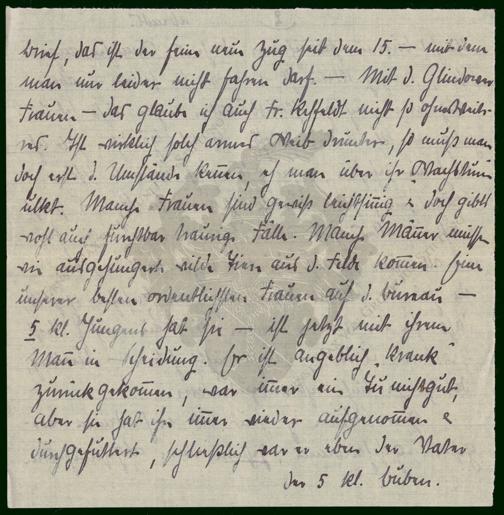 brief, das ist der feine neue Zug seit dem 15. — mit dem
man nur leider nicht fahren darf. — Mit d. Glindower
Frauen — das glaube ich auch Fr. Kehfeldt nicht so ohne Weite-
res. Ist wirklich solch armes Weib drunter, so muß man
doch erst d. Umstände kennen, eh man über ihr Wachstum
ulkt. Manche Frauen sind gewiß leichtsinnig & doch gibts
wohl auch furchtbar traurige Fälle. Manche Männer müssen
wie ausgehungerte wilde Tiere aus d. Felde kommen. Eine
unserer besten ordentlichsten Frauen auf d. Bureau —
5 kl. Jungens hat sie — ist jetzt mit ihrem
Mann in Scheidung. Er ist angeblich „krank"
zurückgekommen, war immer ein Tunichtgut,
aber sie hat ihn immer wieder aufgenommen &
durchgefuttert, schließlich war er eben der Vater
der 5 kl. Buben.